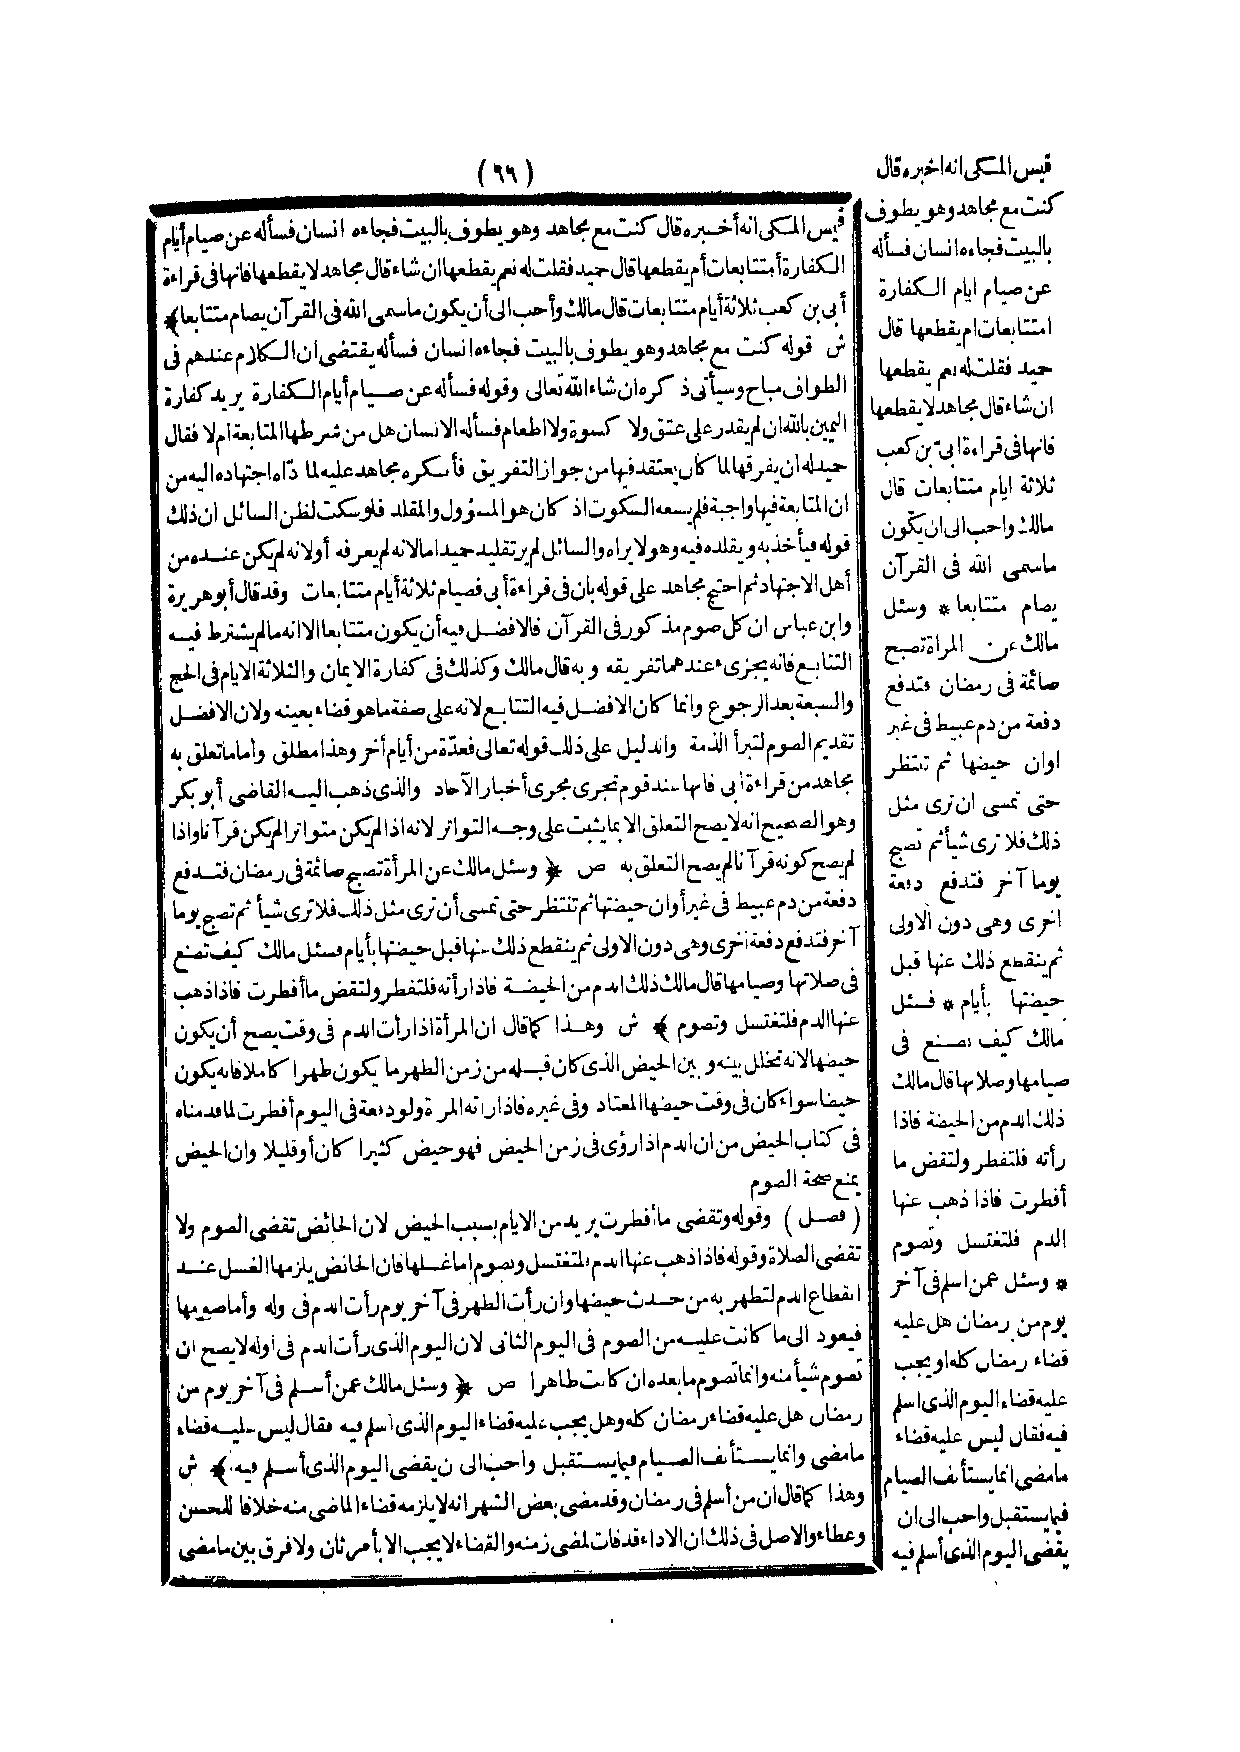 (٦٦)
قيس المكى انه أخبره قال كنت مع مجاهد وهو يطوف بالبيت فجاءه انسان فسأله عن صيام أيام
الكفارة أمتتابعات أم يقطعها قال حميد فقلت له نعم يقطعها ان شاء قال مجاهد لا يقطعها فانها فى قراءة
أبي بن كعب ثلاثة أيام متتابعات قال مالك وأحب الى أن يكون ما سمى الله فى القرآن يصام متتابعا ﴾
ش قوله كنت مع مجاهد وهو يطوف بالبيت فجاءه انسان فسأله يقتضى ان الكلام عندهم فى
الطواف مباح وسيأتى ذكره ان شاء الله تعالى وقوله فسأله عن صيام أيام الكفارة يريد كفارة
اليمين بالله ان لم يقدر على عتق ولا كسوة ولا اطعام فسأله الانسان هل من شرطها المتابعة ام لا فقال
حميد له ان يفرقها لما كان يعتقد فيها من جواز التفريق فأنكره مجاهد عليه لما أداه اجتهاده اليه من
ان المتابعة فيها واجبة فلم يسعه السكوت اذ كان هو المسؤول والمقلد فلو سكت لظن السائل ان ذلك
قوله فيأخذ به ويقلده فيه وهو لا يراه والسائل لم ير تقليد حميد اما لانه لم يعرفه أو لانه لم يكن عنده من
أهل الاجتهاد ثم احتج مجاهد على قوله بان فى قراءة أبى فصيام ثلاثة أيام متتابعات وقد قال أبو هريرة
وابن عباس ان كل صوم مذكور فى القرآن فالافضل فيه أن يكون متتابعا الا انه ما لم يشترط فيه
التتابع فانه يجزىء عندهما تفريقه وبه قال مالك وكذلك فى كفارة الايمان والثلاثة الايام فى الحج
والسبعة بعد الرجوع وانما كان الافضل فيه التتابع لانه على صفة ما هو قضاء بعينه ولان الافضل
تقديم الصوم لتبرأ الذمة والدليل على ذلك قوله تعالى فعدّة من أيام أخر وهذا مطلق وأما ما تعلق به
مجاهد من قراءة أبى فانها عند قوم تجرى مجرى أخبار الآحاد والذى ذهب اليه القاضى أبو بكر
وهو الصحيح انه لا يصح التعلق الا بما يثبت على وجه التواتر لانه اذا لم يكن متواترا لم يكن قرآنا واذا
لم يصح كونه قرآنا لم يصح التعلق به ص ﴿ وسئل مالك عن المرأة تصبح صائمة فى رمضان فتدفع
دفعة من دم عبيط فى غير أوان حيضتها ثم تنتظر حتى تمسى أن ترى مثل ذلك فلا ترى شيأ ثم تصبح يوما
آخر فتدفع دفعة اخرى وهى دون الاولى ثم ينقطع ذلك عنها قبل حيضتها بأيام فسئل مالك كيف تصنع
فى صلاتها وصيامها قال مالك ذلك الدم من الحيضة فاذا رأته فلتفطر ولتقض ما أفطرت فاذا ذهب
عنها الدم فلتغتسل وتصوم ﴾ ش وهذا كما قال ان المرأة اذا رأت الدم فى وقت يصح أن يكون
حيضا لانه تخلل بينه وبين الحيض الذى كان قبله من زمن الطهر ما يكون طهرا كاملا فانه يكون
حيضا سواء كان فى وقت حيضها المعتاد وفى غيره فاذا رأته المرأة ولو دفعة فى اليوم أفطرت لما قدمناه
فى كتاب الحيض من ان الدم اذا رؤى فى زمن الحيض فهو حيض كثيرا كان أو قليلا وان الحيض
يمنع صحة الصوم
(فصل) وقوله وتقضى ما أفطرت يريد من الايام بسبب الحيض لان الحائض تقضى الصوم ولا
تقضى الصلاة وقوله فاذا ذهب عنها الدم فلتغتسل وتصوم اما غسلها فان الحائض يلزمها الغسل عند
انقطاع الدم لتطهر به من حدث حيضها وان رأت الطهر فى آخر يوم رأت الدم فى أوله وأما صومها
فيعود الى ما كانت عليه من الصوم فى اليوم الثانى لان اليوم الذى رأت الدم فى أوله لا يصح ان
تصوم شيأ منه وانما تصوم ما بعده ان كانت طاهرا ص ﴿ وسئل مالك عمن أسلم فى آخر يوم من
رمضان هل عليه قضاء رمضان كله وهل يجب عليه قضاء اليوم الذى أسلم فيه فقال ليس عليه قضاء
ما مضى وانما يستأنف الصيام فيما يستقبل واحب الى ان يقضى اليوم الذى أسلم فيه ﴾ ش
وهذا كما قال ان من أسلم فى رمضان وقد مضى بعض الشهر انه لا يلزمه قضاء الماضى منه خلافا للحسن
وعطاء والاصل فى ذلك ان الاداء قد فات لمضى زمنه والقضاء لا يجب الا بأمر ثان ولا فرق بين ما مضى
قيس المكى انه اخبره قال
كنت مع مجاهد وهو يطوف
بالبيت فجاءه انسان فسأله
عن صيام ايام الكفارة
امتتابعات ام يقطعها قال
حميد فقلت له نعم يقطعها
ان شاء قال مجاهد لا يقطعها
فانها فى قراءة ابىّ بن كعب
ثلاثة ايام متتابعات قال
مالك واحب الى ان يكون
ما سمى الله فى القرآن
يصام متتابعا * وسئل
مالك عن المرأة تصبح
صائمة فى رمضان فتدفع
دفعة من دم عبيط فى غير
اوان حيضها ثم تنتظر
حتى تمسى ان ترى مثل
ذلك فلا ترى شيأ ثم تصبح
يوما آخر فتدفع دفعة
اخرى وهى دون الاولى
ثم ينقطع ذلك عنها قبل
حيضتها بأيام * فسئل
مالك كيف تصنع فى
صيامها وصلاتها قال مالك
ذلك الدم من الحيضة فاذا
رأته فلتفطر ولتقض ما
أفطرت فاذا ذهب عنها
الدم فلتغتسل وتصوم
* وسئل عمن اسلم فى آخر
يوم من رمضان هل عليه
قضاء رمضان كله او يجب
عليه قضاء اليوم الذى اسلم
فيه فقال ليس عليه قضاء
ما مضى انما يستأنف الصيام
فيما يستقبل واحب الى ان
يقضى اليوم الذى أسلم فيه